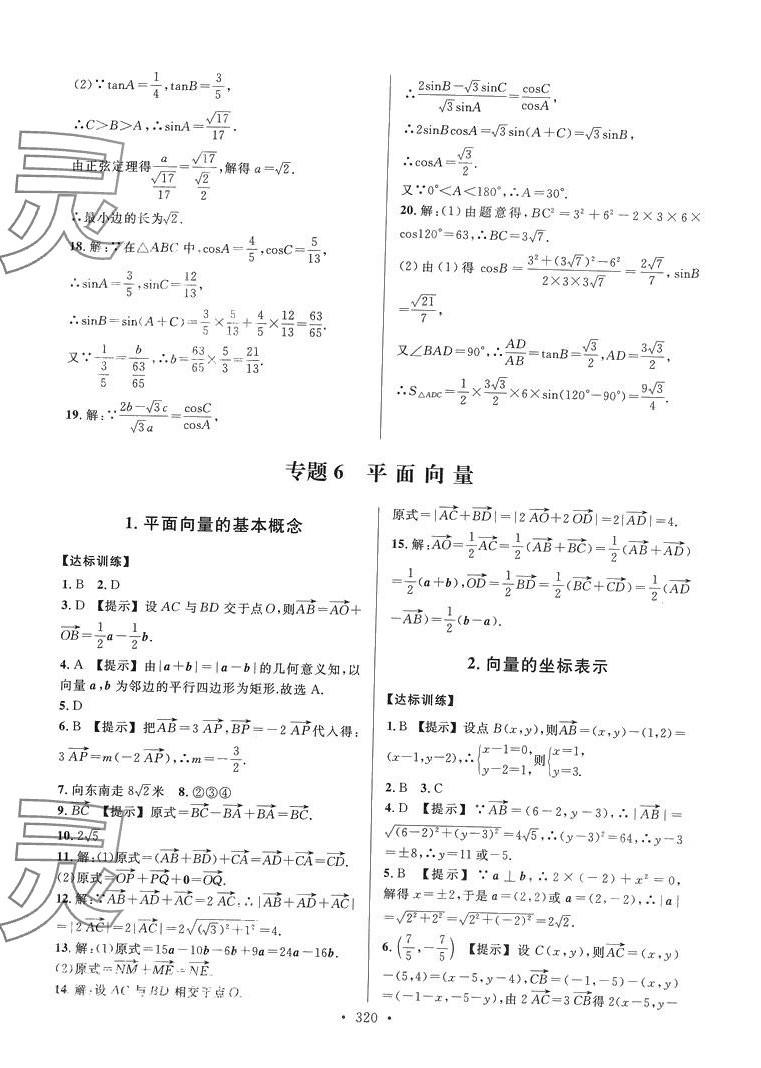 (2)∵tanA=1/4,tanB=3/5,
∴C>B>A,∴sinA=√17/17.
由正弦定理得 a/(√17/17)=√17/(√2/2),解得a=√2.
∴最小边的长为√2.
18.解:∵在△ABC中,cosA=4/5,cosC=5/13,
∴sinA=3/5,sinC=12/13,
∴sinB=sin(A+C)=3/5×5/13+4/5×12/13=63/65.
又∵1/(3/5)=b/(63/65),∴b=63/65×5/3=21/13.
19.解:∵(2b-√3c)/(√3a)=cosC/cosA,
∴(2sinB-√3sinC)/(√3sinA)=cosC/cosA,
∴2sinBcosA=√3sin(A+C)=√3sinB,
∴cosA=√3/2.
又∵0°<A<180°,∴A=30°.
20.解:(1)由题意得,BC²=3²+6²-2×3×6×
cos120°=63,∴BC=3√7.
(2)由(1)得 cosB=(3²+(3√7)²-6²)/(2×3×3√7)=2√7/7,sinB
=√21/7,
又∠BAD=90°,∴AD/AB=tanB=√3/2,AD=3√3/2,
∴S△ADC=1/2×3√3/2×6×sin(120°-90°)=9√3/4.
专题6 平面向量
1.平面向量的基本概念
【达标训练】
1.B 2.D
3.D 【提示】设AC与BD交于点O,则AB→=AO→+
OB→=1/2a-1/2b.
4.A 【提示】由|a+b|=|a-b|的几何意义知,以
向量a,b为邻边的平行四边形为矩形.故选A.
5.D
6.B 【提示】把AB→=3AP→,BP→=-2AP→代入得:
3AP→=m(-2AP→),∴m=-3/2.
7.向东南走8√2米 8.②③④
9.BC→ 【提示】原式=BC→-BA→+BA→=BC→.
10.2√5
11.解:(1)原式=(AB→+BD→)+CA→=AD→+CA→=CD→.
(2)原式=OP→+PQ→+0=OQ→.
12.解:∵AB→+AD→+AC→=2AC→,∴|AB→+AD→+AC→|
=|2AC→|=2|AC→|=2√((√3)²+1²)=4.
13.解:(1)原式=15a-10b-6b+9a=24a-16b.
(2)原式=NM→+ME→=NE→.
14.解:设AC与BD相交于点O.
原式=|AC→+BD→|=|2AO→+2OD→|=2|AD→|=4.
15.解:AO→=1/2AC→=1/2(AB→+BC→)=1/2(AB→+AD→)
=1/2(a+b),OD→=1/2BD→=1/2(BC→+CD→)=1/2(AD→
-AB→)=1/2(b-a).
2.向量的坐标表示
【达标训练】
1.B 【提示】设点B(x,y),则AB→=(x,y)-(1,2)=
(x-1,y-2),∴{x-1=0,y-2=1,则{x=1,y=3.
2.B 3.C
4.D 【提示】∵AB→=(6-2,y-3),∴|AB→|=
√((6-2)²+(y-3)²)=4√5,∴(y-3)²=64,∴y-3
=±8,∴y=11或-5.
5.B 【提示】∵a⊥b,∴2×(-2)+x²=0,
解得x=±2,于是a=(2,2)或a=(2,-2),∴|a|
=√(2²+2²)=√(2²+(-2)²)=2√2.
6.(7/5,-7/5) 【提示】设C(x,y),则AC→=(x,y)
-(5,4)=(x-5,y-4),CB→=(-1,-5)-(x,y)
=(-1-x,-5-y),由2AC→=3CB→得2(x-5,y-
·320·
灵
灵